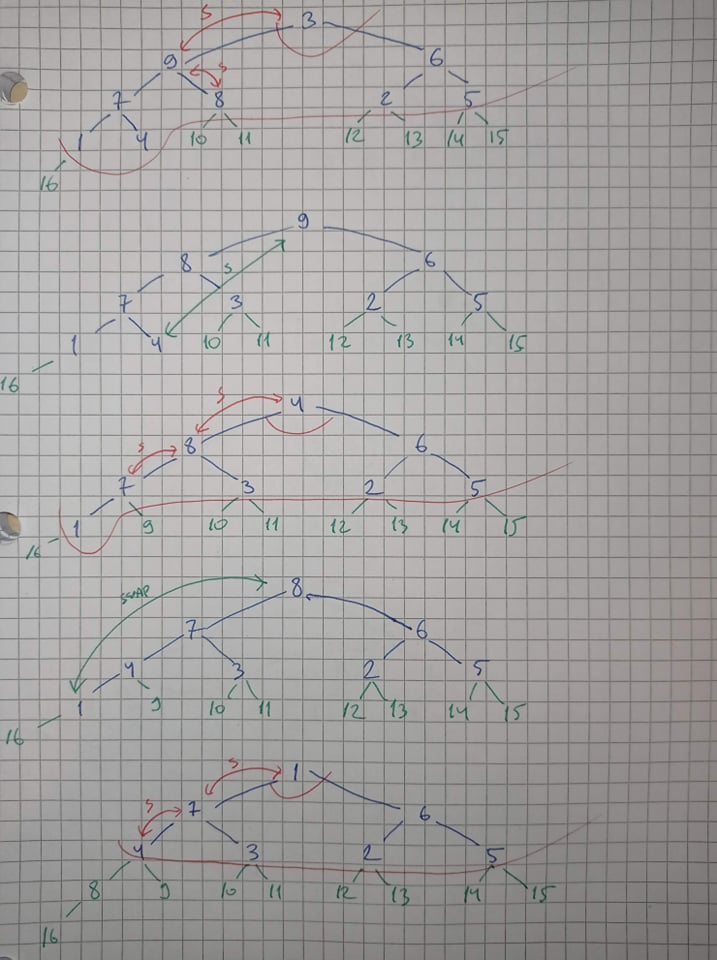 S 3
9 S 6
7 8 2 5
1 4 10 11 12 13 14 15
16
9
8 S 6
7 3 2 5
1 4 10 11 12 13 14 15
16
S 4
S 8 6
7 3 2 5
16 1 9 10 11 12 13 14 15
SWAP 8
7 6
4 3 2 5
16 1 9 10 11 12 13 14 15
S 1
S 7 6
4 3 2 5
8 9 10 11 12 13 14 15
16